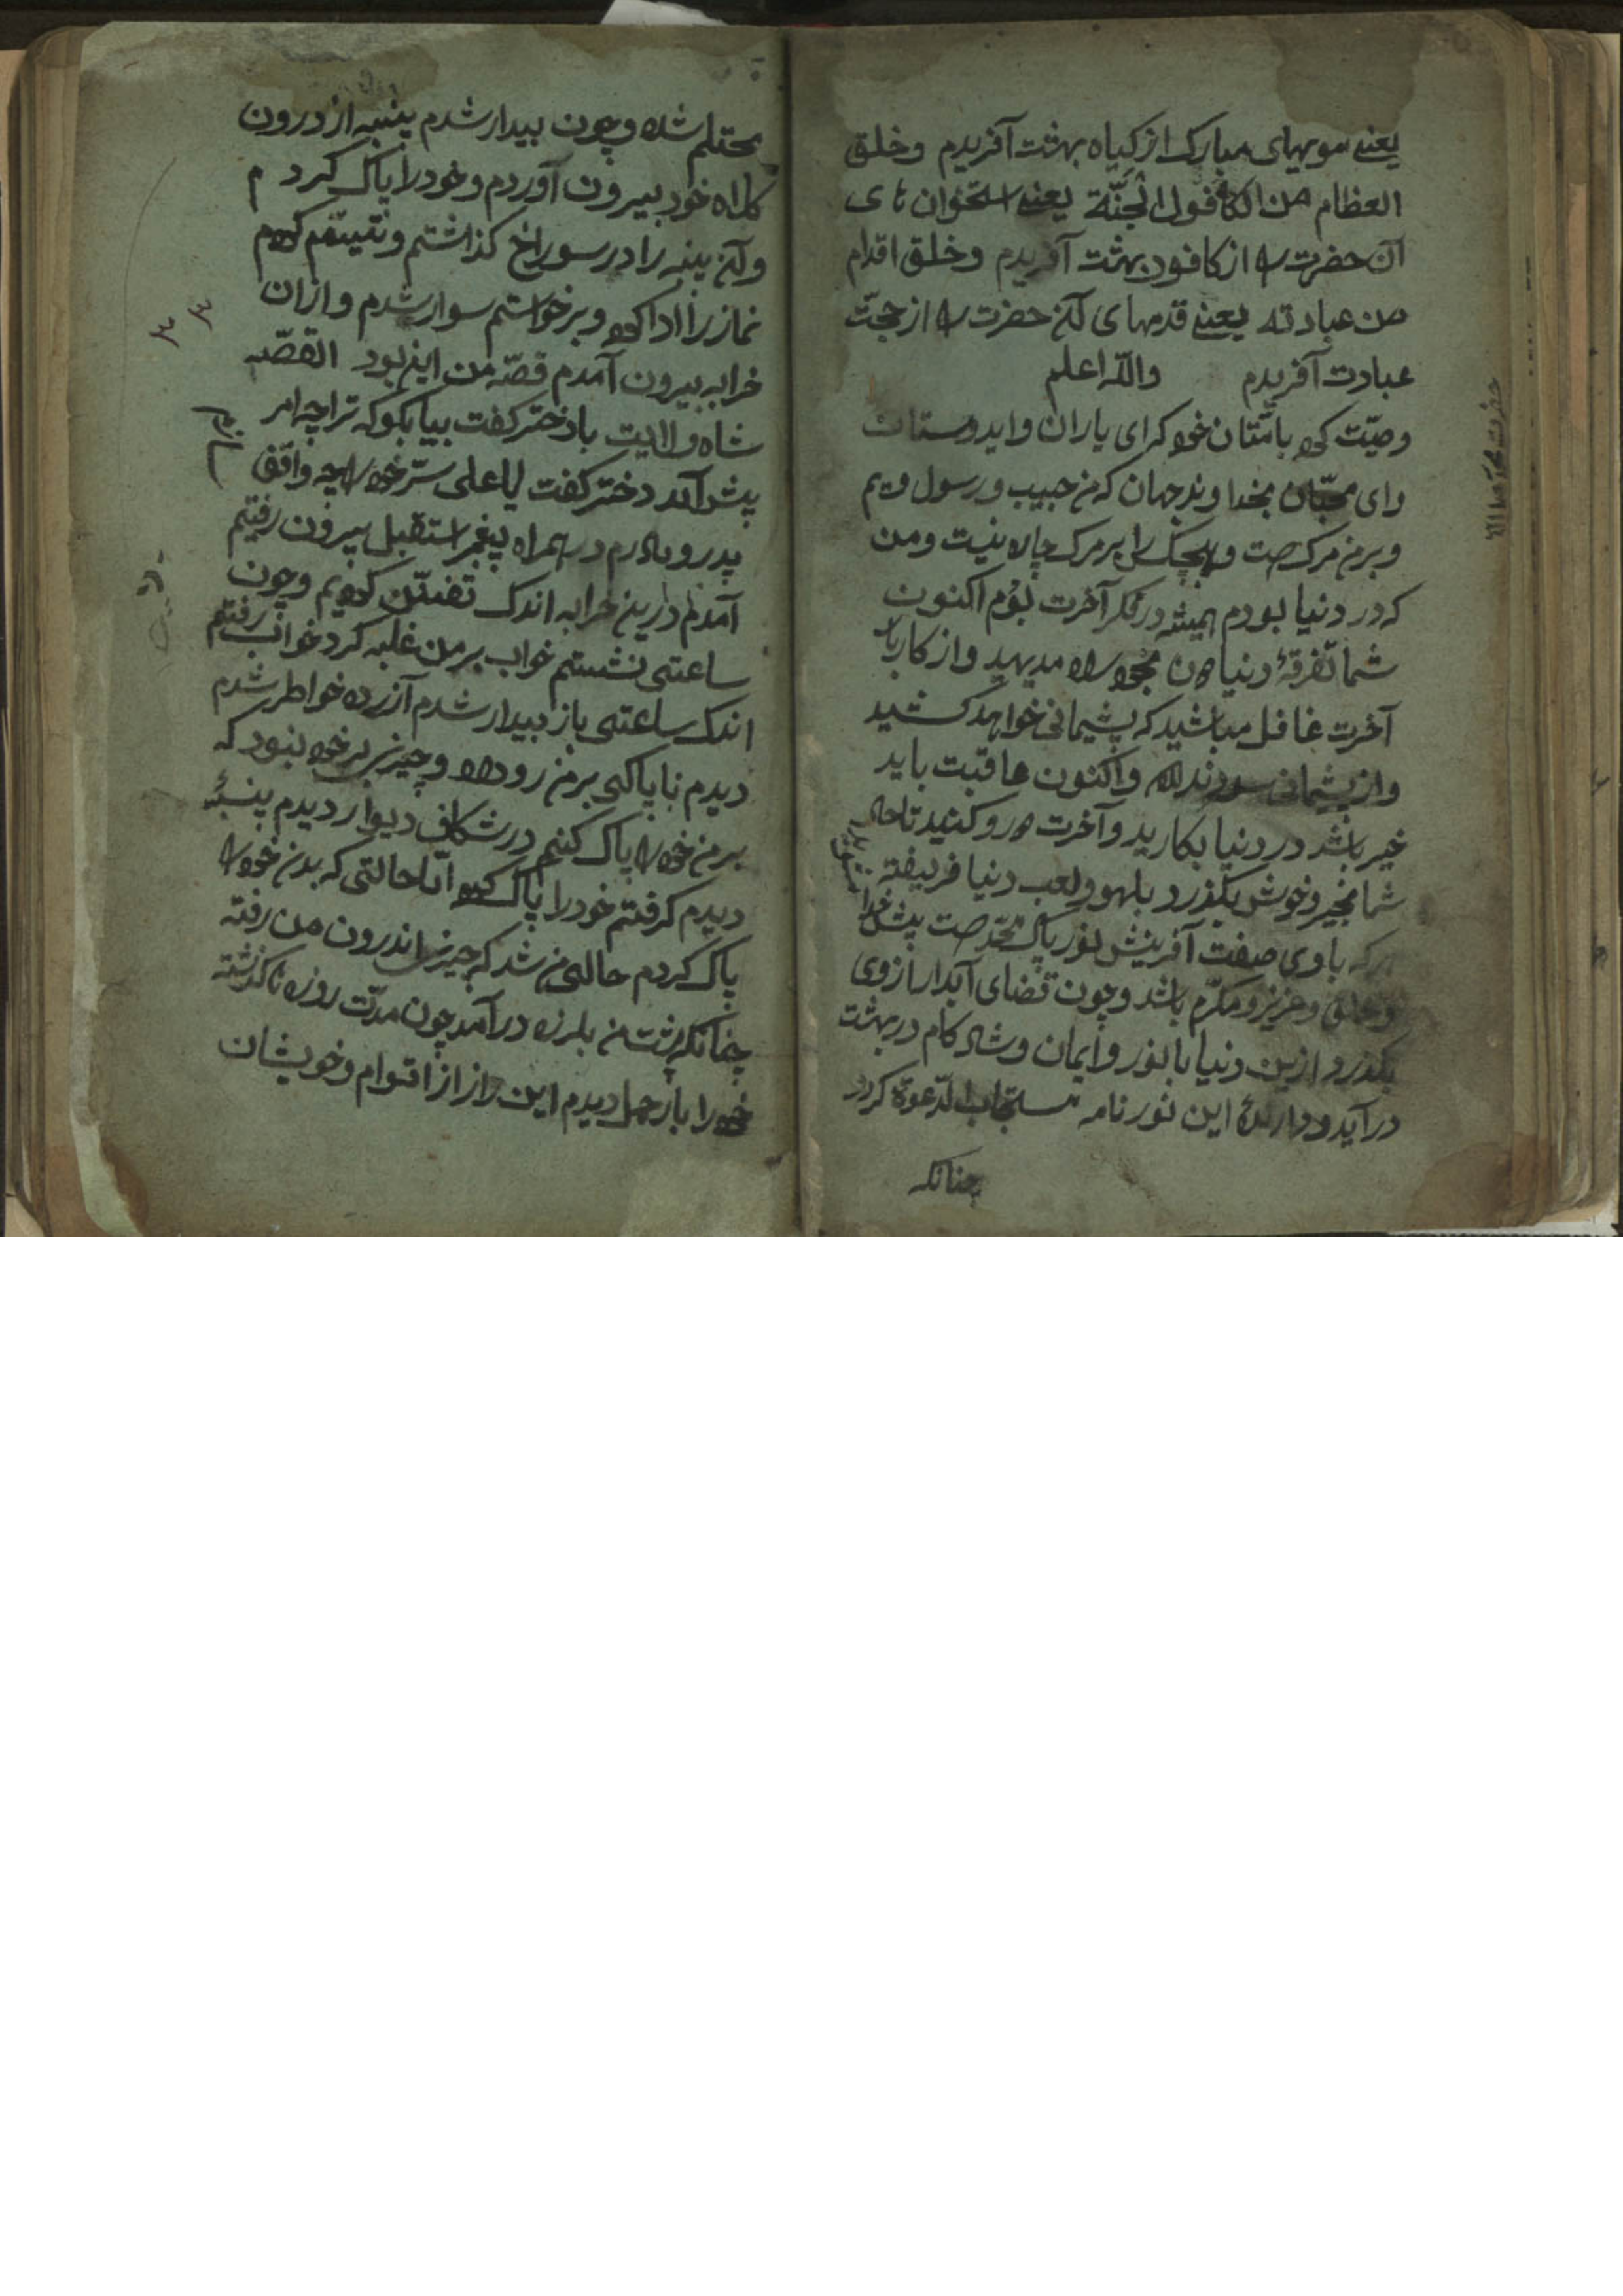 یعنے مویهای مبارک از کیاه بهشت آفریدم وخلق
العظام من الکافول الجنّة یعنے استخوان های
آن حضرت را از کافور بهشت آفریدم وخلق اقدام
من عبادته یعنے قدمهای آن حضرت را از حجّت
عبادت آفریدم واللّه اعلم
وصیّت کرد بامّتان خود که ای یاران وایدوستان
وای محبّان بخداوند جهان که من حبیب ورسول ویم
وبر من مرک هست وهیچکس را بر مرک چاره نیست ومن
که در دنیا بودم همیشه در فکر آخرت بودم اکنون
شما تفرقهٔ دنیا بخود راه مدیهید واز کارها
آخرت غافل مباشید که پشیمانی خواهد کشید
واز پشیمانی سود ندارد واکنون عاقبت باید
غیر باشد در دنیا بکارید وآخرت درو کنید تا حال
شما بخیر وخوش بکذرد بلهو ولعب دنیا فریفته
هرکه باوی صفت آفرینش نور پاک محمّد هست پیش خدا
وخلق وعزیز ومکرّم باشد وچون قضای آبدار ازوی
بکذرد ازین دنیا با نور وایمان وشاد کام در بهشت
درآید ودارندهٔ این نور نامه مستجاب الدّعوة کردد
چنانکه
محتلم شده وچون بیدار شدم پنبه از درون
کلاه خود بیرون آوردم وخود را پاک کردم
وآن پنبه را در سوراخ کذاشتم وتیمّم کردم
نماز را ادا کرد وبرخواستم سوار شدم وازان
خرابه بیرون آمدم قصّه من این بود القصّه
شاه ولایت با دختر کفت بیا بکو که ترا چه امر
پیش آمد دختر کفت یا علی سرّ خود را چه واقف
پدر ومادرم در همراه پیغمبر استقبل بیرون رفتیم
آمدم درین خرابه اندک تفنّن کردیم وچون
ساعتی نشستم خواب بر من غلبه کرد خواب رفتم
اندک ساعتی باز بیدار شدم آزرده خواطر شدم
دیدم ناپاکی بر من رو داد وچیزی بر خود نبود که
بر من خود را پاک کنم در شکاف دیوار دیدم پنبهٔ
دیدم کرفتم خود را پاک کرد امّا حالتی که بدن خود را
پاک کردم حالی من شد که چیزی اندرون من رفته
چنانکه پشت من بلرزه درآمد چون مدّت روزه ناکذشته
خود را بار حمل دیدم این راز از اقوام وخویشان